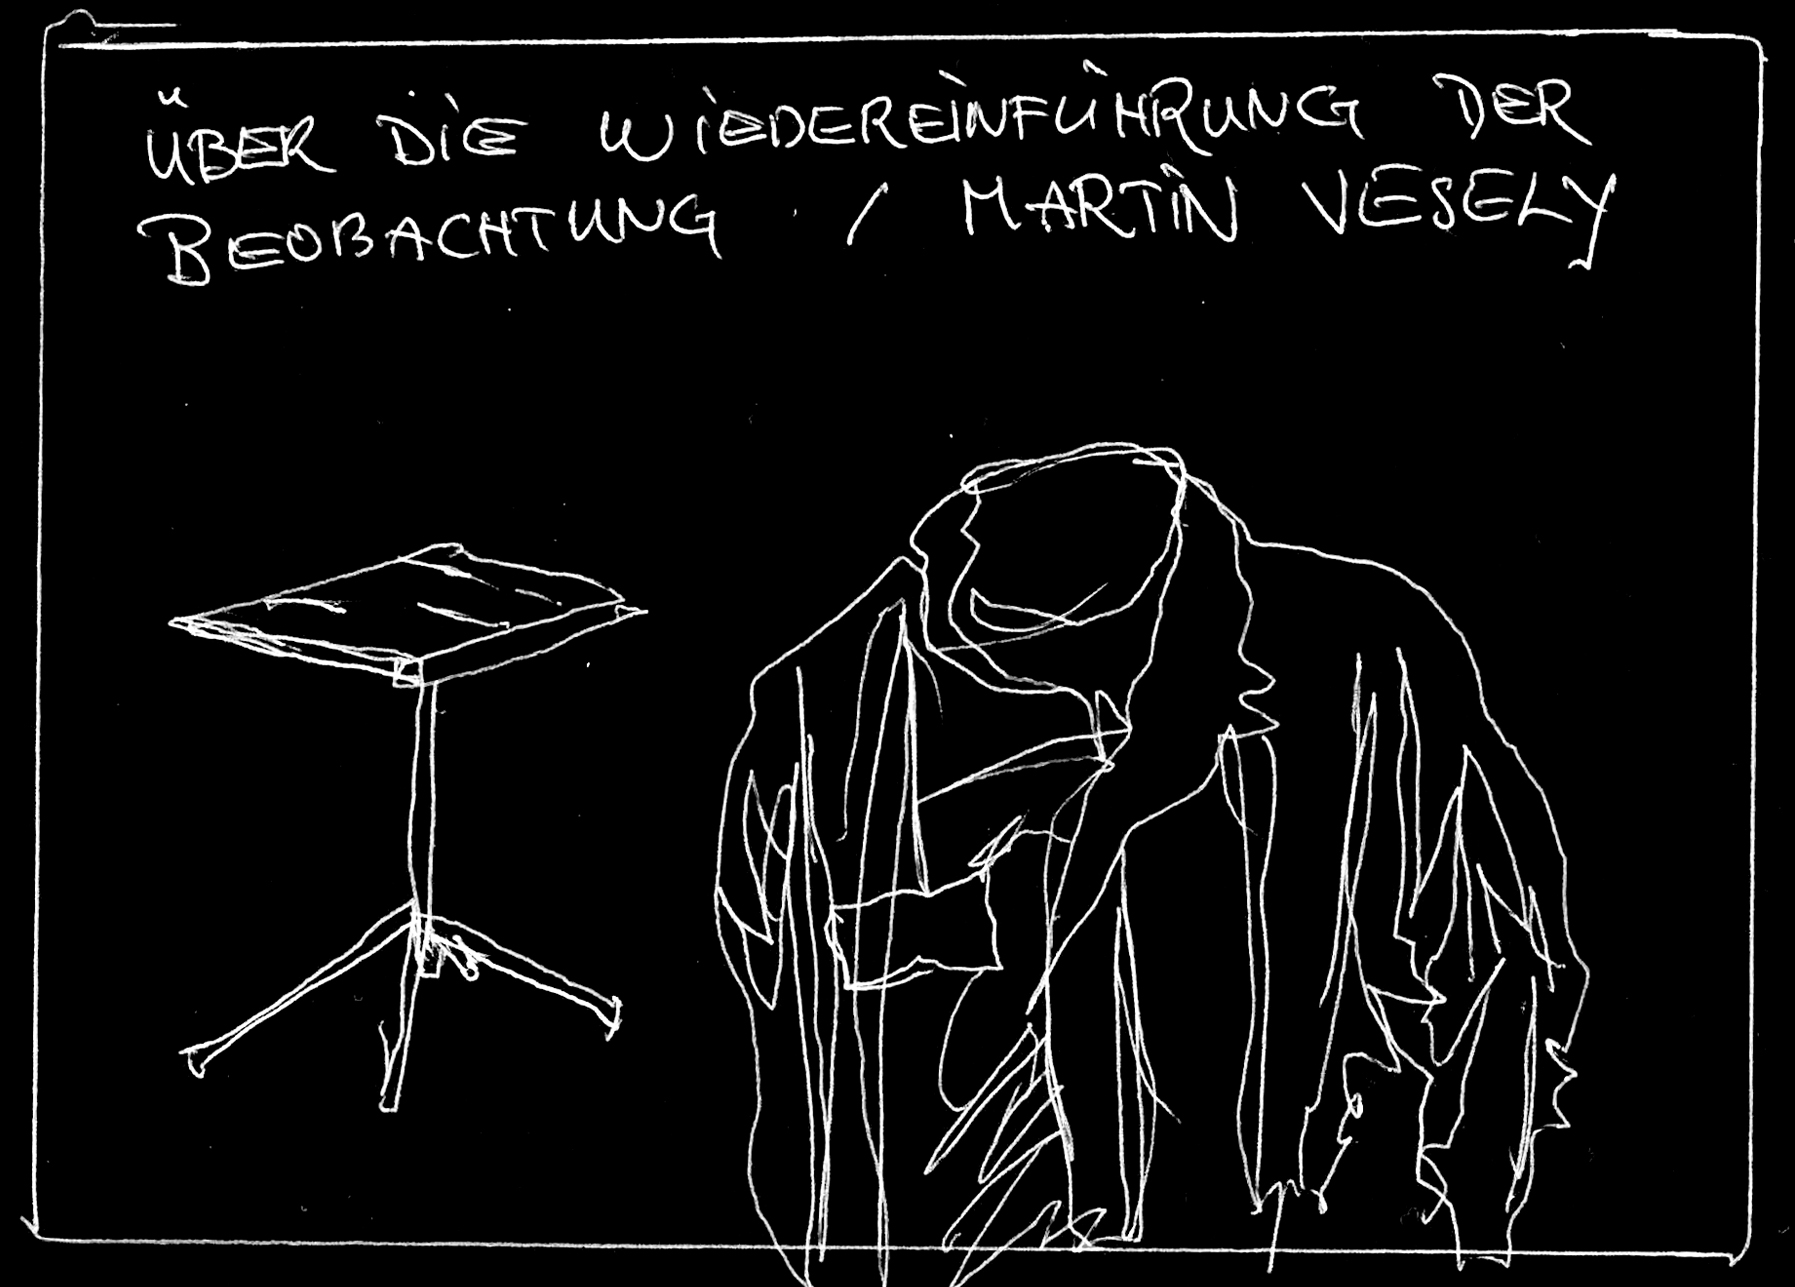 ÜBER DIE WIEDEREINFÜHRUNG DER
BEOBACHTUNG / MARTIN VESELY